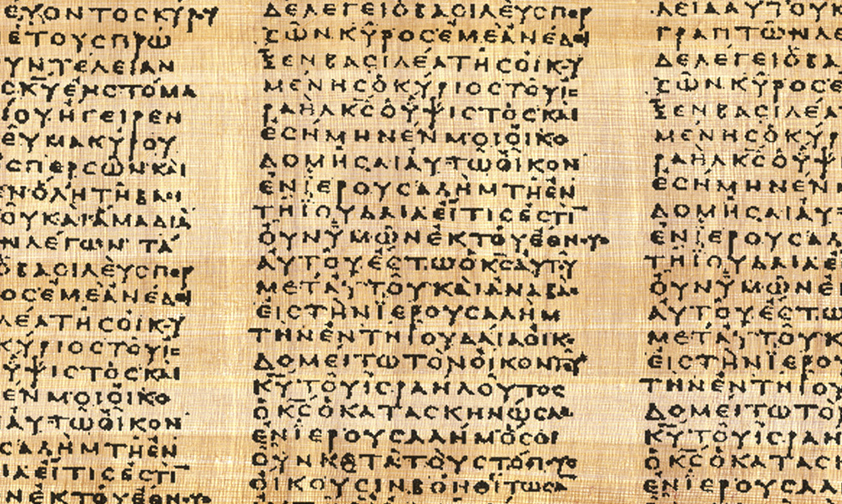 ΕΥΟΝΤΟCΚΥΡΟΥ
ΕΤΟΥCΠΡΩ
ΥΝΤΕΛΕΙΑΝ
CΚΥΕΝCΤΟΜΑ
ΙΟΥΗΓΕΙΡΕΝ
ΕΥΜΑΚΥΡΟΥ
CΠΕΡCΩΝΚΑΙ
ΕΝΟΛΗΤΗΒΑCΙ
ΟΥΚΑΙΑΜΑΔΙΑ
ΝΛΕΓΩΝΤΑ
ΟΒΑCΙΛΕΥCΠΕΡ
ΟCΕΜΕΑΝΕΔΕΙ
ΛΕΑΤΗCΟΙΚΟΥ
ΚΥΡΙΟCΤΟΥΙC
ΥΨΙCΤΟCΚΑΙ
ΕΝΜΟΙΟΙΚΟ
ΑΥΤΩΟΙΚΟΝ
CΑΛΗΜΤΗΕΝ
ΙΑΕΙΤΙCΕCΤΙ
ΝΕΚΤΟΥΕΘΝΟΥC
ΔΕΛΕΓΕΙΟΒΑCΙΛΕΥCΠΕΡ
CΩΝΚΥΡΟCΕΜΕΑΝΕΔΕΙ
ΞΕΝΒΑCΙΛΕΑΤΗCΟΙΚΟΥ
ΜΕΝΗCΟΚΥΡΙΟCΤΟΥΙC
ΡΑΗΛΚCΟΥΨΙCΤΟCΚΑΙ
ΕCΗΜΗΝΕΝΜΟΙΟΙΚΟ
ΔΟΜΗCΑΙΑΥΤΩΟΙΚΟΝ
ΕΝΙΕΡΟΥCΑΛΗΜΤΗΕΝ
ΤΗΙΟΥΔΑΙΑΕΙΤΙCΕCΤΙ
ΟΥΝΥΜΩΝΕΚΤΟΥΕΘΝΟΥC
ΑΥΤΟΥΕCΤΩΟΚCΑΥΤΟΥ
ΜΕΤΑΥΤΟΥΚΑΙΑΝΑΒΑC
ΕΙCΤΗΝΙΕΡΟΥCΑΛΗΜ
ΤΗΝΕΝΤΗΙΟΥΔΑΙΑΟΙΚΟ
ΔΟΜΕΙΤΩΤΟΝΟΙΚΟΝΤΟΥ
ΚΥΤΟΥΙCΡΑΗΛΟΥΤΟC
ΟΚCΟΚΑΤΑCΚΗΝΩCΑC
ΕΝΙΕΡΟΥCΑΛΗΜΟCΟΙ
ΟΥΝΚΑΤΑΤΟΥCΤΟΠΟΥC
ΟΙΚΟΥCΙΝΒΟΗΘΙΤΩCΑΝ
ΛΕΙΑΑΥΤΟΥΚ
ΓΡΑΠΤΩΝΛΕ
ΔΕΛΕΓΕΙΟΒΑ
CΩΝΚΥΡΟCΕ
ΞΕΝΒΑCΙΛΕΑΤ
ΜΕΝΗCΟΚΥΡ
ΡΑΗΛΚCΟΥΨΙ
ΕCΗΜΗΝΕΝ
ΔΟΜΗCΑΙΑΥΤ
ΕΝΙΕΡΟΥCΑΛ
ΤΗΙΟΥΔΑΙΑΕ
ΟΥΝΥΜΩΝΕ
ΑΥΤΟΥΕCΤΩ
ΜΕΤΑΥΤΟΥΚ
ΕΙCΤΗΝΙΕΡΟΥ
ΤΗΝΕΝΤΗΙΟΥ
ΔΟΜΕΙΤΩΤΟ
ΚΥΤΟΥΙCΡΑΗ
ΟΚCΟΚΑΤΑC
ΕΝΙΕΡΟΥCΑΛ